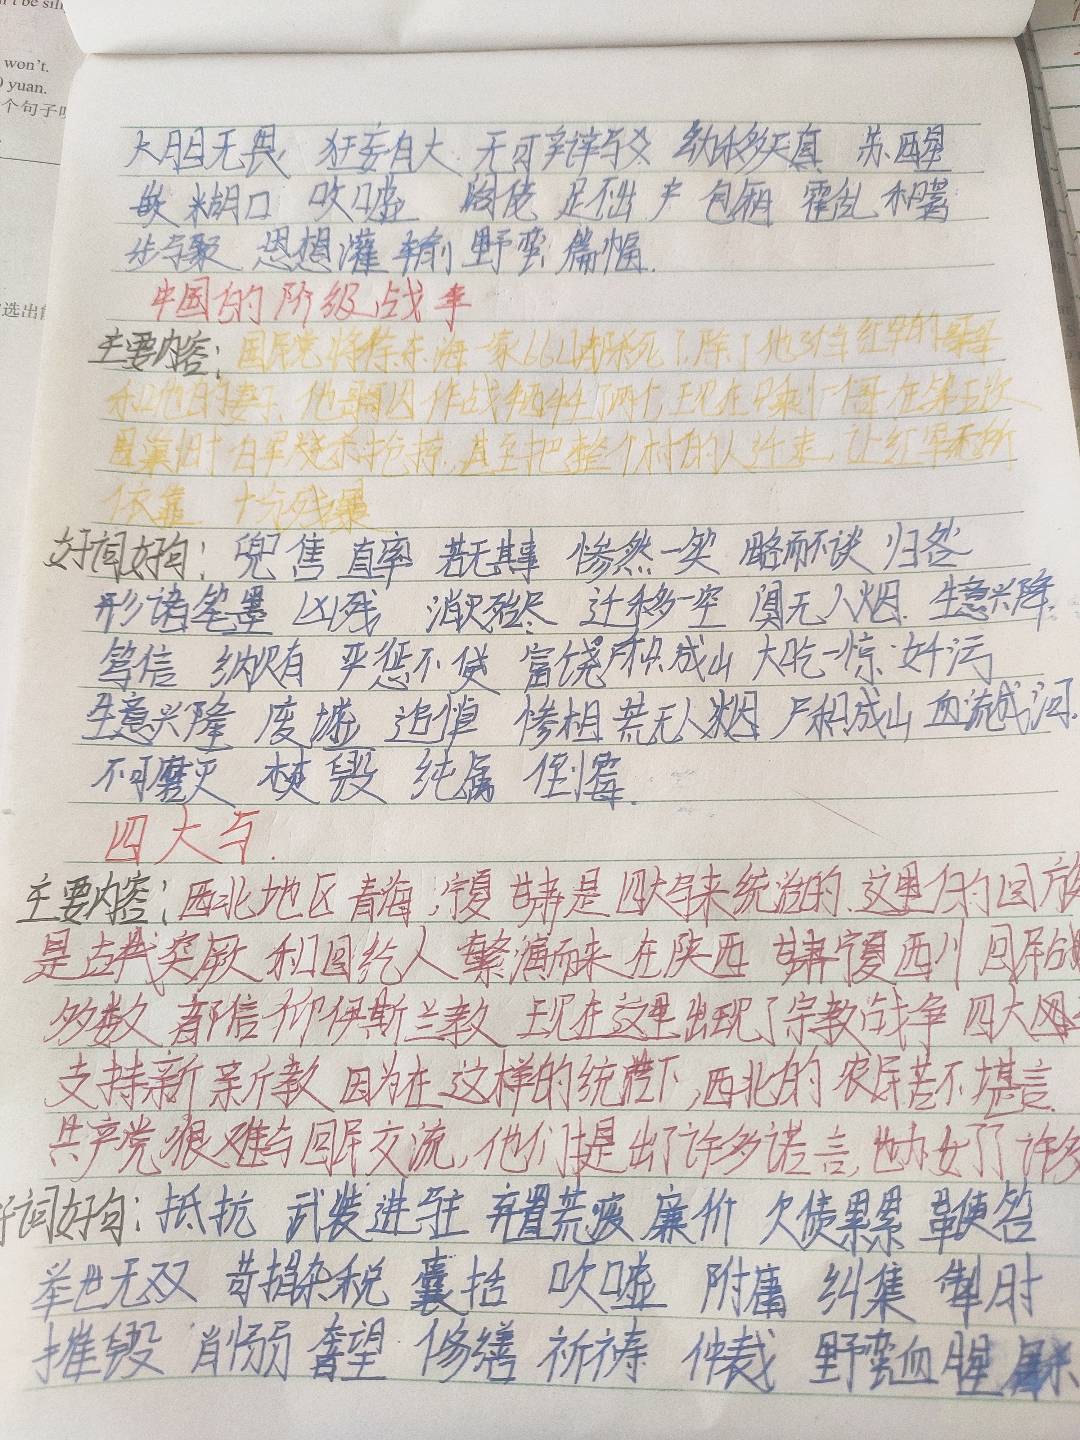 n't be sill
won't.
0 yuan.
个句子
选出
大胆无畏 狂妄自大 无可辩驳 幼稚天真 苏醒
糊口 吹嘘 陶侥 足不出户 包厢 霍乱 和署
步与聚 思想灌输 野蛮 篇幅.
中国的阶级战争
主要内容: 国民党将徐东海一家66口都杀死了,除了他3个当红军的哥哥
和他自己的妻子,他哥哥因作战牺牲了两个,现在只剩下一个哥,在第五次
围剿时白军烧杀抢掠,甚至把整个村的人迁走,让红军无所
依靠 十分残暴
好词好句: 兜售 直率 若无其事 惨然一笑 略而不谈 归咎
形诸笔墨 凶残 消灭殆尽 迁移一空 阒无人烟. 生意兴隆.
笃信 纵有 严惩不贷 富饶 尸积成山 大吃一惊 奸污
生意兴隆 废墟 追悼 惨相 荒无人烟 尸积成山 血流成河.
不可磨灭 焚毁 纯属 倒霉.
四大马.
主要内容: 西北地区青海,宁夏甘肃是四大马来统治的.这里们的回族
是古代突厥和回纥人繁演而来 在陕西 甘肃宁夏四川 回民占
多数 都信仰伊斯兰教 现在这里出现了宗教战争 四大
支持新 新教 因为在这样的统治下,西北的农民苦不堪言
共产党很难与回民交流,他们提出了许多诺言,也办女了许多
好词好句: 抵抗 武装进驻 弃置荒废 廉价 欠债累累 鞭笞
举世无双 苛捐杂税 囊括 吹嘘 附庸 纠集 掣肘
摧毁 削弱 奢望 修缮 祈祷 仲裁 野蛮血腥